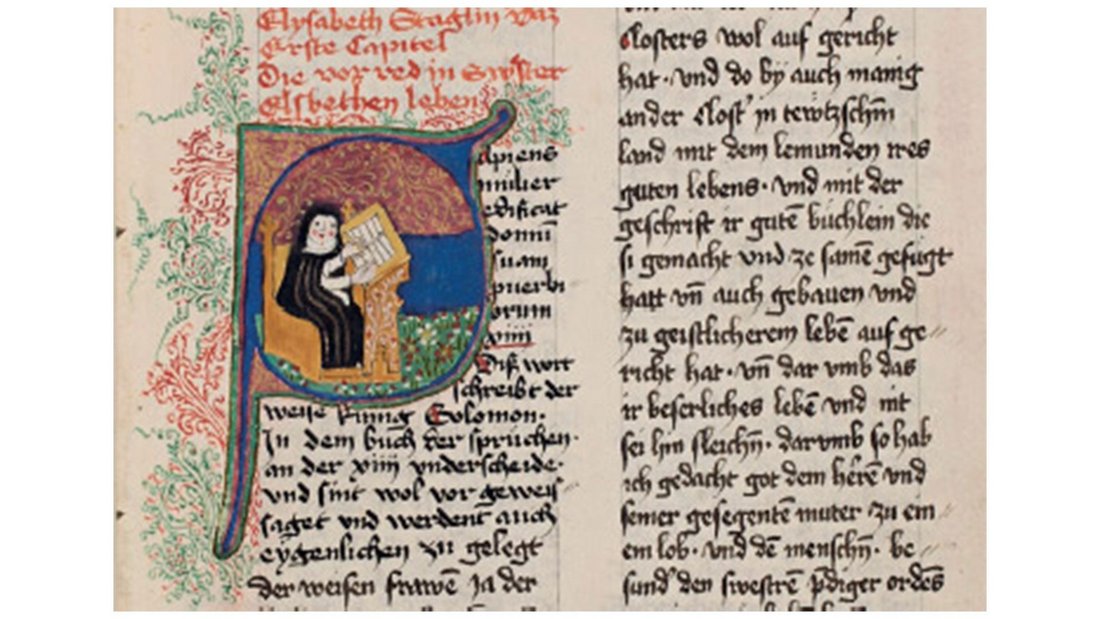 Elysabeth Staglin vaz
Erste Capitel
Die vor red in Swester
Elsbethen leben
apiens
mulier
edificat
domū
suam
puerbi
orum
xiiii
Diß wort
schreibt der
weise künig Solomon·
In dem buch der spruchen·
an der xiiii vnderscheide·
vnd sint wol vor geweis
saget vnd werdent auch
eygenlichen zu gelegt
der weisen frawē Ja der
closters wol auf gericht
hat· vnd do by auch manig
ander clost' in tewtzschm
land mit dem lemunden ires
guten lebens· vnd mit der
geschrift ir gutē buchlein die
si gemacht vnd ze samē gefugt
hatt vn̄ auch gebauen vnd
zu geistlicherem lebē auf ge〃
richt hat· vn̄ dar vmb das
ir beserliches lebē vnd nit
sei hin sleichn̄· darvmb so hab
ich gedacht got dem herē vnd
seiner gesegentē muter zu em〃
em lob· vnd dē menschn̄· be〃
sund' den swestrē pdiger ordēs